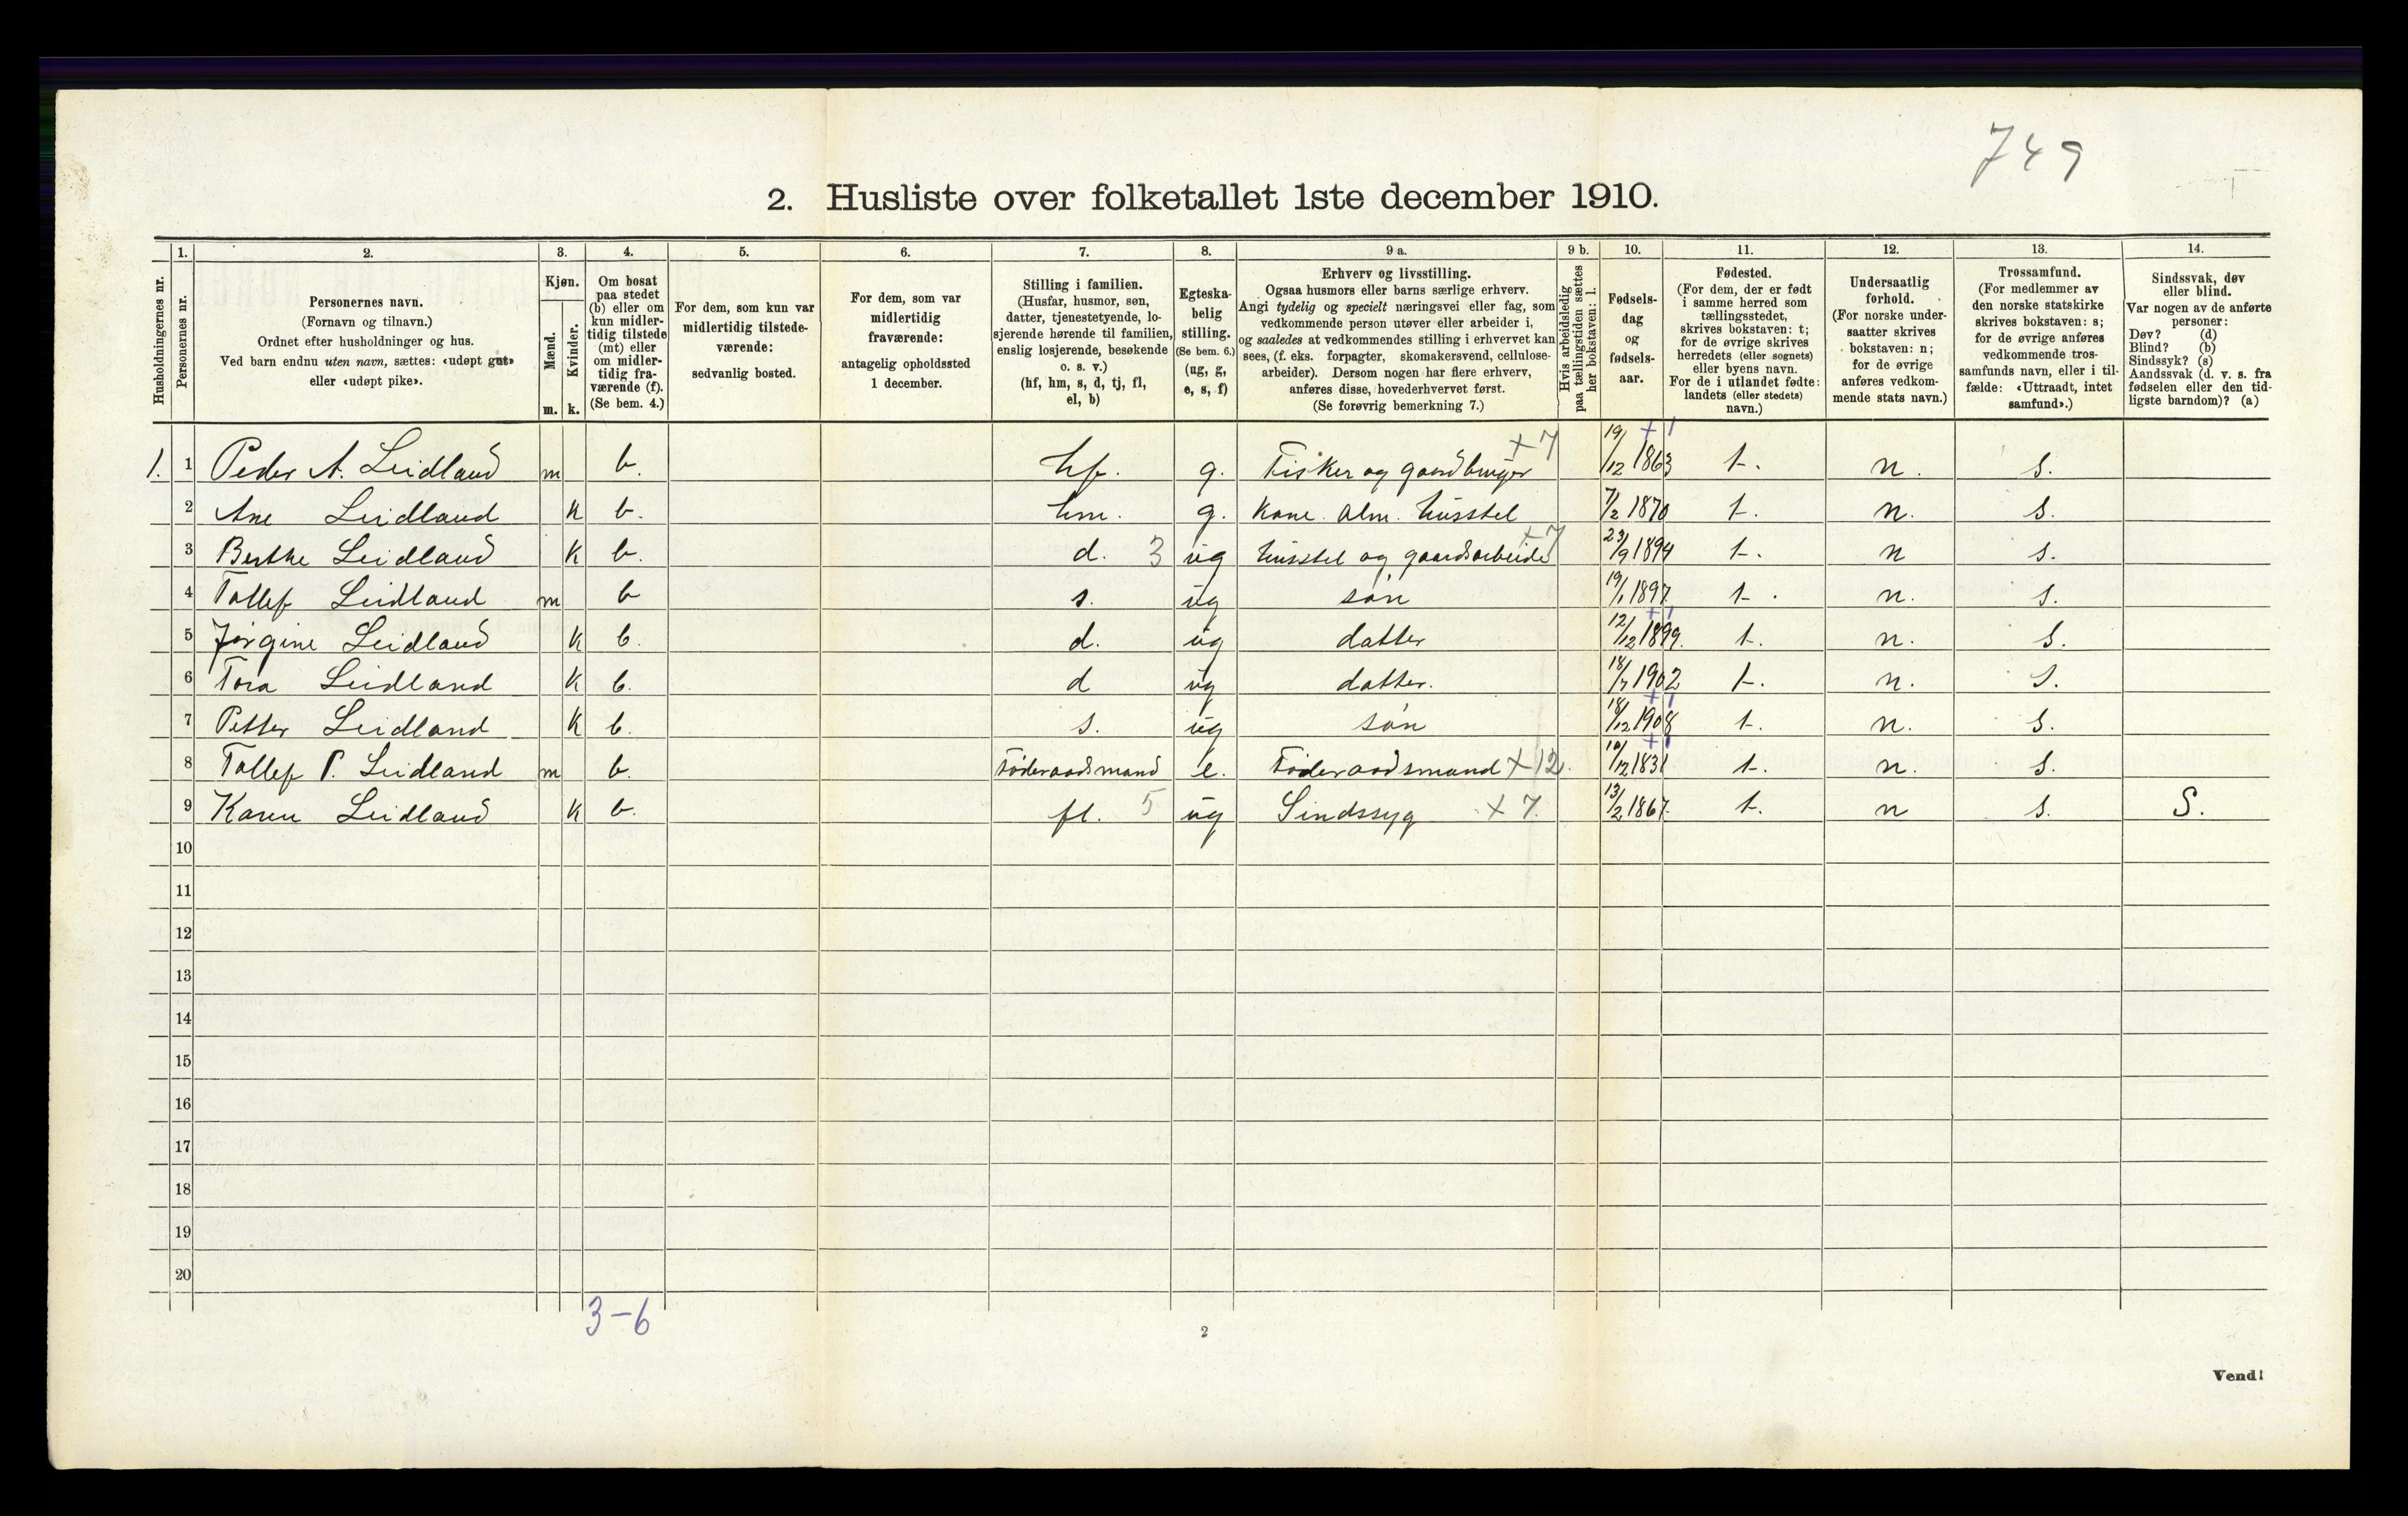 749
2. Husliste over folketallet 1ste december 1910.
Husholdningernes nr.
1. Personernes nr.
2. Personernes navn.
(Fornavn og tilnavn.)
Ordnet efter husholdninger og hus.
Ved barn endnu uten navn, sættes: «udøpt gut»
eller «udøpt pike».
3. Kjøn.
Mænd. m.
Kvinder. k.
4. Om bosat
paa stedet
(b) eller om
kun midler-
tidig tilstede
(mt) eller
om midler-
tidig fra-
værende (f).
(Se bem. 4.)
5. For dem, som kun var
midlertidig tilstede-
værende:
sedvanlig bosted.
6. For dem, som var
midlertidig
fraværende:
antagelig opholdssted
1 december.
7. Stilling i familien.
(Husfar, husmor, søn,
datter, tjenestetyende, lo-
sjerende hørende til familien,
enslig losjerende, besøkende
o. s. v.)
(hf, hm, s, d, tj, fl,
el, b)
8. Egteska-
belig
stilling.
(Se bem. 6.)
(ug, g,
e, s, f)
9 a. Erhverv og livsstilling.
Ogsaa husmors eller barns særlige erhverv.
Angi tydelig og specielt næringsvei eller fag, som
vedkommende person utøver eller arbeider i,
og saaledes at vedkommendes stilling i erhvervet kan
sees, (f. eks. forpagter, skomakersvend, cellulose-
arbeider). Dersom nogen har flere erhverv,
anføres disse, hovederhvervet først.
(Se forøvrig bemerkning 7.)
9 b. Hvis arbeidsledig
paa tællingstiden sættes
her bokstaven: l.
10. Fødsels-
dag
og
fødsels-
aar.
11. Fødested.
(For dem, der er født
i samme herred som
tællingsstedet,
skrives bokstaven: t;
for de øvrige skrives
herredets (eller sognets)
eller byens navn.
For de i utlandet fødte:
landets (eller stedets)
navn.)
12. Undersaatlig
forhold.
(For norske under-
saatter skrives
bokstaven: n;
for de øvrige
anføres vedkom-
mende stats navn.)
13. Trossamfund.
(For medlemmer av
den norske statskirke
skrives bokstaven: s;
for de øvrige anføres
vedkommende tros-
samfunds navn, eller i til-
fælde: «Uttraadt, intet
samfund».)
14. Sindssvak, døv
eller blind.
Var nogen av de anførte
personer:
Døv? (d)
Blind? (b)
Sindssyk? (s)
Aandssvak (d. v. s. fra
fødselen eller den tid-
ligste barndom)? (a)
1. 1 Peder A. Leidland m b. hf. g. Fisker og gaardbruger +7 19/12 1863 +1 t. n. s.
2 Ane Leidland k b. hm. g. Kone. Alm. husstel 7/2 1870 t. n. s.
3 Berthe Leidland k b. d. 3 ug husstel og gaardsarbeide +7 23/9 1894 t. n s.
4 Tollef Leidland m b s. ug søn 19/1 1897 t. n. s.
5 Jørgine Leidland k b. d. ug datter 12/12 1899. +1 t. n. s.
6 Tora Leidland k b. d ug datter. 18/7 1902 t. n. s.
7 Petter Leidland k b. s. ug søn 18/12 1908 +1 t. n. s.
8 Tollef P. Leidland m b. Føderaadsmand e. Føderaadsmand +12. 10/12 1831 +1 t. n. s.
9 Karen Leidland k b. fl. 5 ug Sindssyg +7. 13/2 1867. t. n s. S.
10
11
12
13
14
15
16
17
18
19
20
3-6
2
Vend!